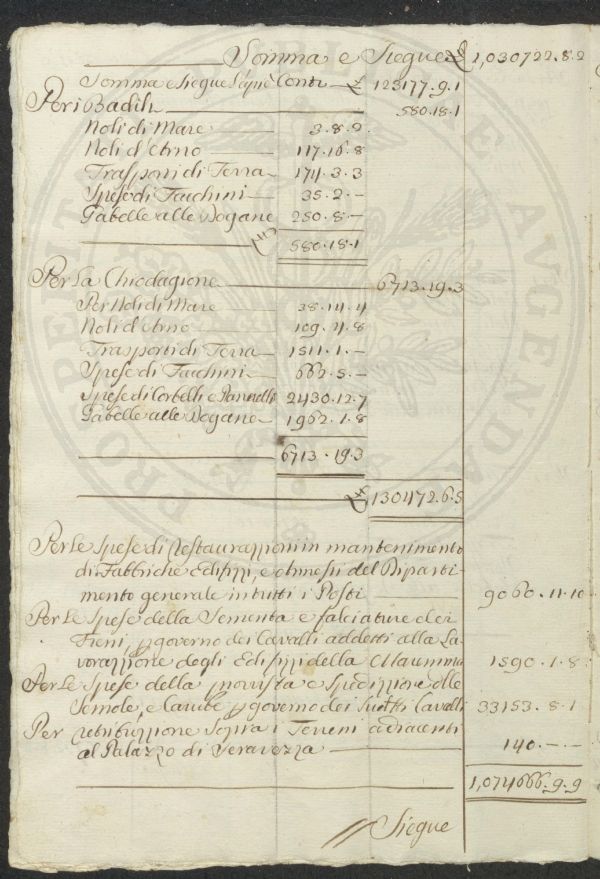 Somma e Siegue £ 1,030722.8.2
Somma e Siegue Conti £ 123177.9.1
Per i Badili 580.18.1
Noli di Mare 3.8.2
Noli d'Arno 117.16.8
Trasporti di Terra 174.3.3
Spese di Facchini 35.2.–
Gabelle alle Dogane 250.8.–
£ 580.18.1
Per La Chiodagione 6713.19.3
Per Noli di Mare 38.14.4
Noli d'Arno 109.4.8
Trasporti di Terra 1511.1.–
Spese di Facchini 662.5.–
Spese di Corbelli e Pannelli 2430.12.7
Gabelle alle Dogane 1962.1.8
6713.19.3
£ 130472.6.5
Per Le Spese di restaurazzioni in mantenimento
di Fabbriche Edifizzi, e annessi del Diparti-
mento generale in tutti i Posti 9060.11.10
Per Le Spese della Sementa e falciature dei
Fieni p governo dei Cavalli addetti alla La-
vorazzione degli Edifizzi della Magona 1590.1.8
Per Le Spese della provista e spedizzione delle
Semole, e Biade p governo dei Sudtti Cavalli 33153.8.1
Per retribuzzione sopra i Terreni adiacenti
al Palazzo di Seravezza 140.–.–
1,074666.9.9
Siegue
PROPENITA AVGENDAE